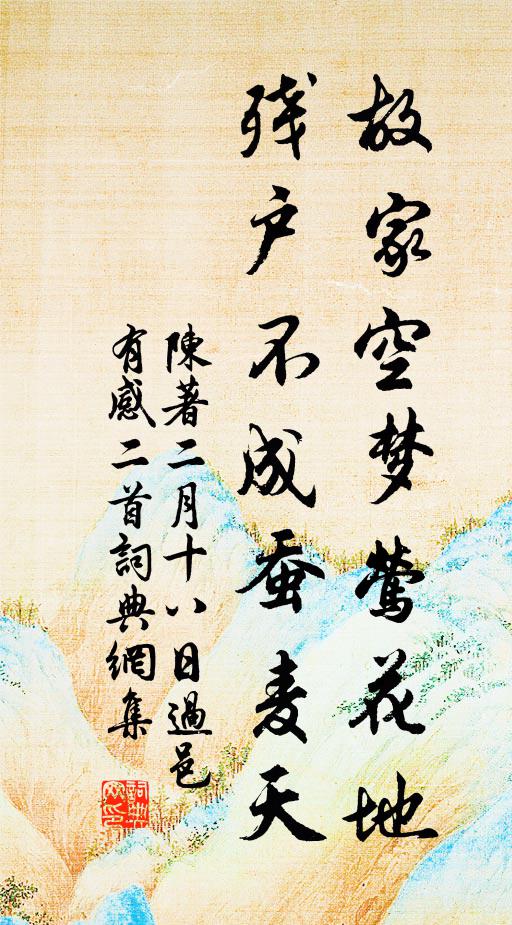 故家空梦莺花地
残户不成蚕麦天
陳著二月十八日過邑
有感二首詞典網集
詞典網印